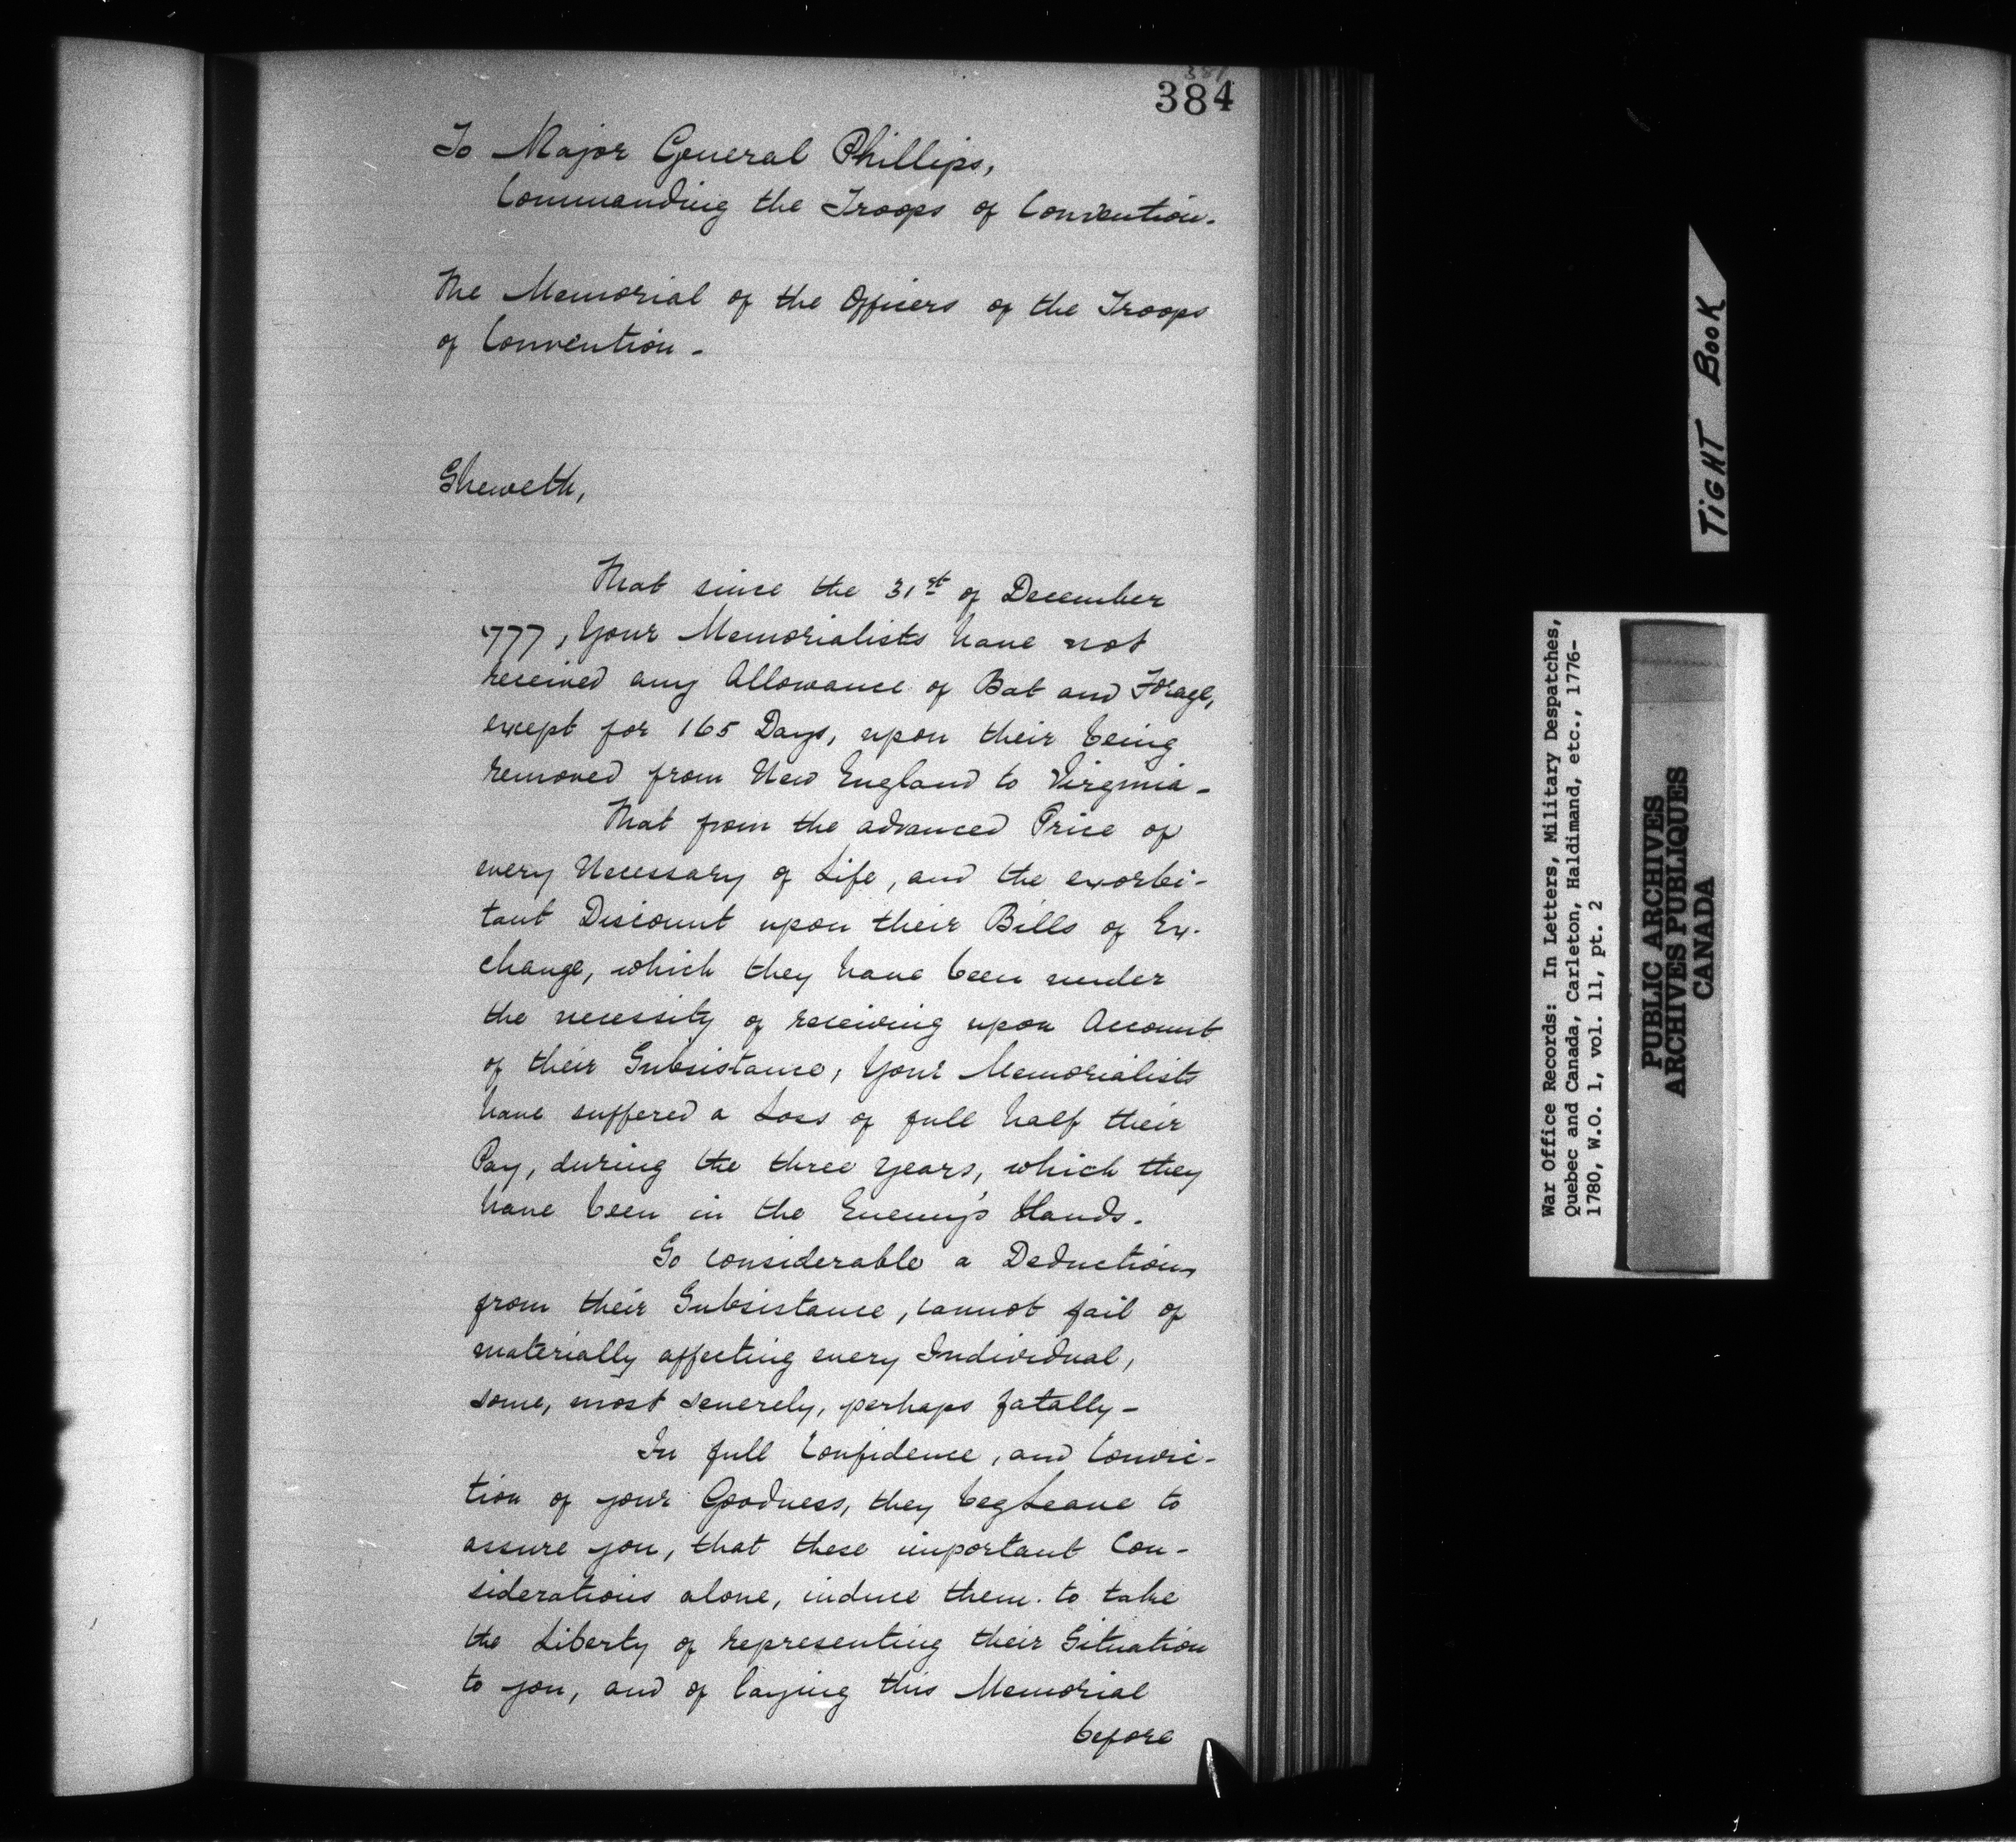 384
To Major General Phillips,
Commanding the Troops of Convention.
The Memorial of the Officers of the Troops
of Convention -
Sheweth,
That since the 31st of December
777, Your Memorialists have not
received any Allowance of Bat and Forage,
except for 165 Days, upon their being
removed from New England to Virginia -
That from the advanced Price of
every Necessary of Life, and the exorbi-
tant Discount upon their Bills of Ex-
change, which they have been under
the necessity of receiving upon Account
of their Subsistance, Your Memorialists
have suffered a Loss of full half their
Pay, during the three years, which they
have been in the Enemy's Hands.
So considerable a Deduction,
from their Subsistance, cannot fail of
materially affecting every Individual,
some, most severely, perhaps fatally -
In full Confidence, and Convic-
tion of your Goodness, they beg Leave to
assure you, that these important Con-
siderations alone, induce them to take
the Liberty of representing their Situation
to you, and of laying this Memorial
before
TiGHT BooK
War Office Records: In Letters, Military Despatches,
Quebec and Canada, Carleton, Haldimand, etc., 1776-
1780, W.O. 1, vol. 11, pt. 2
PUBLIC ARCHIVES
ARCHIVES PUBLIQUES
CANADA